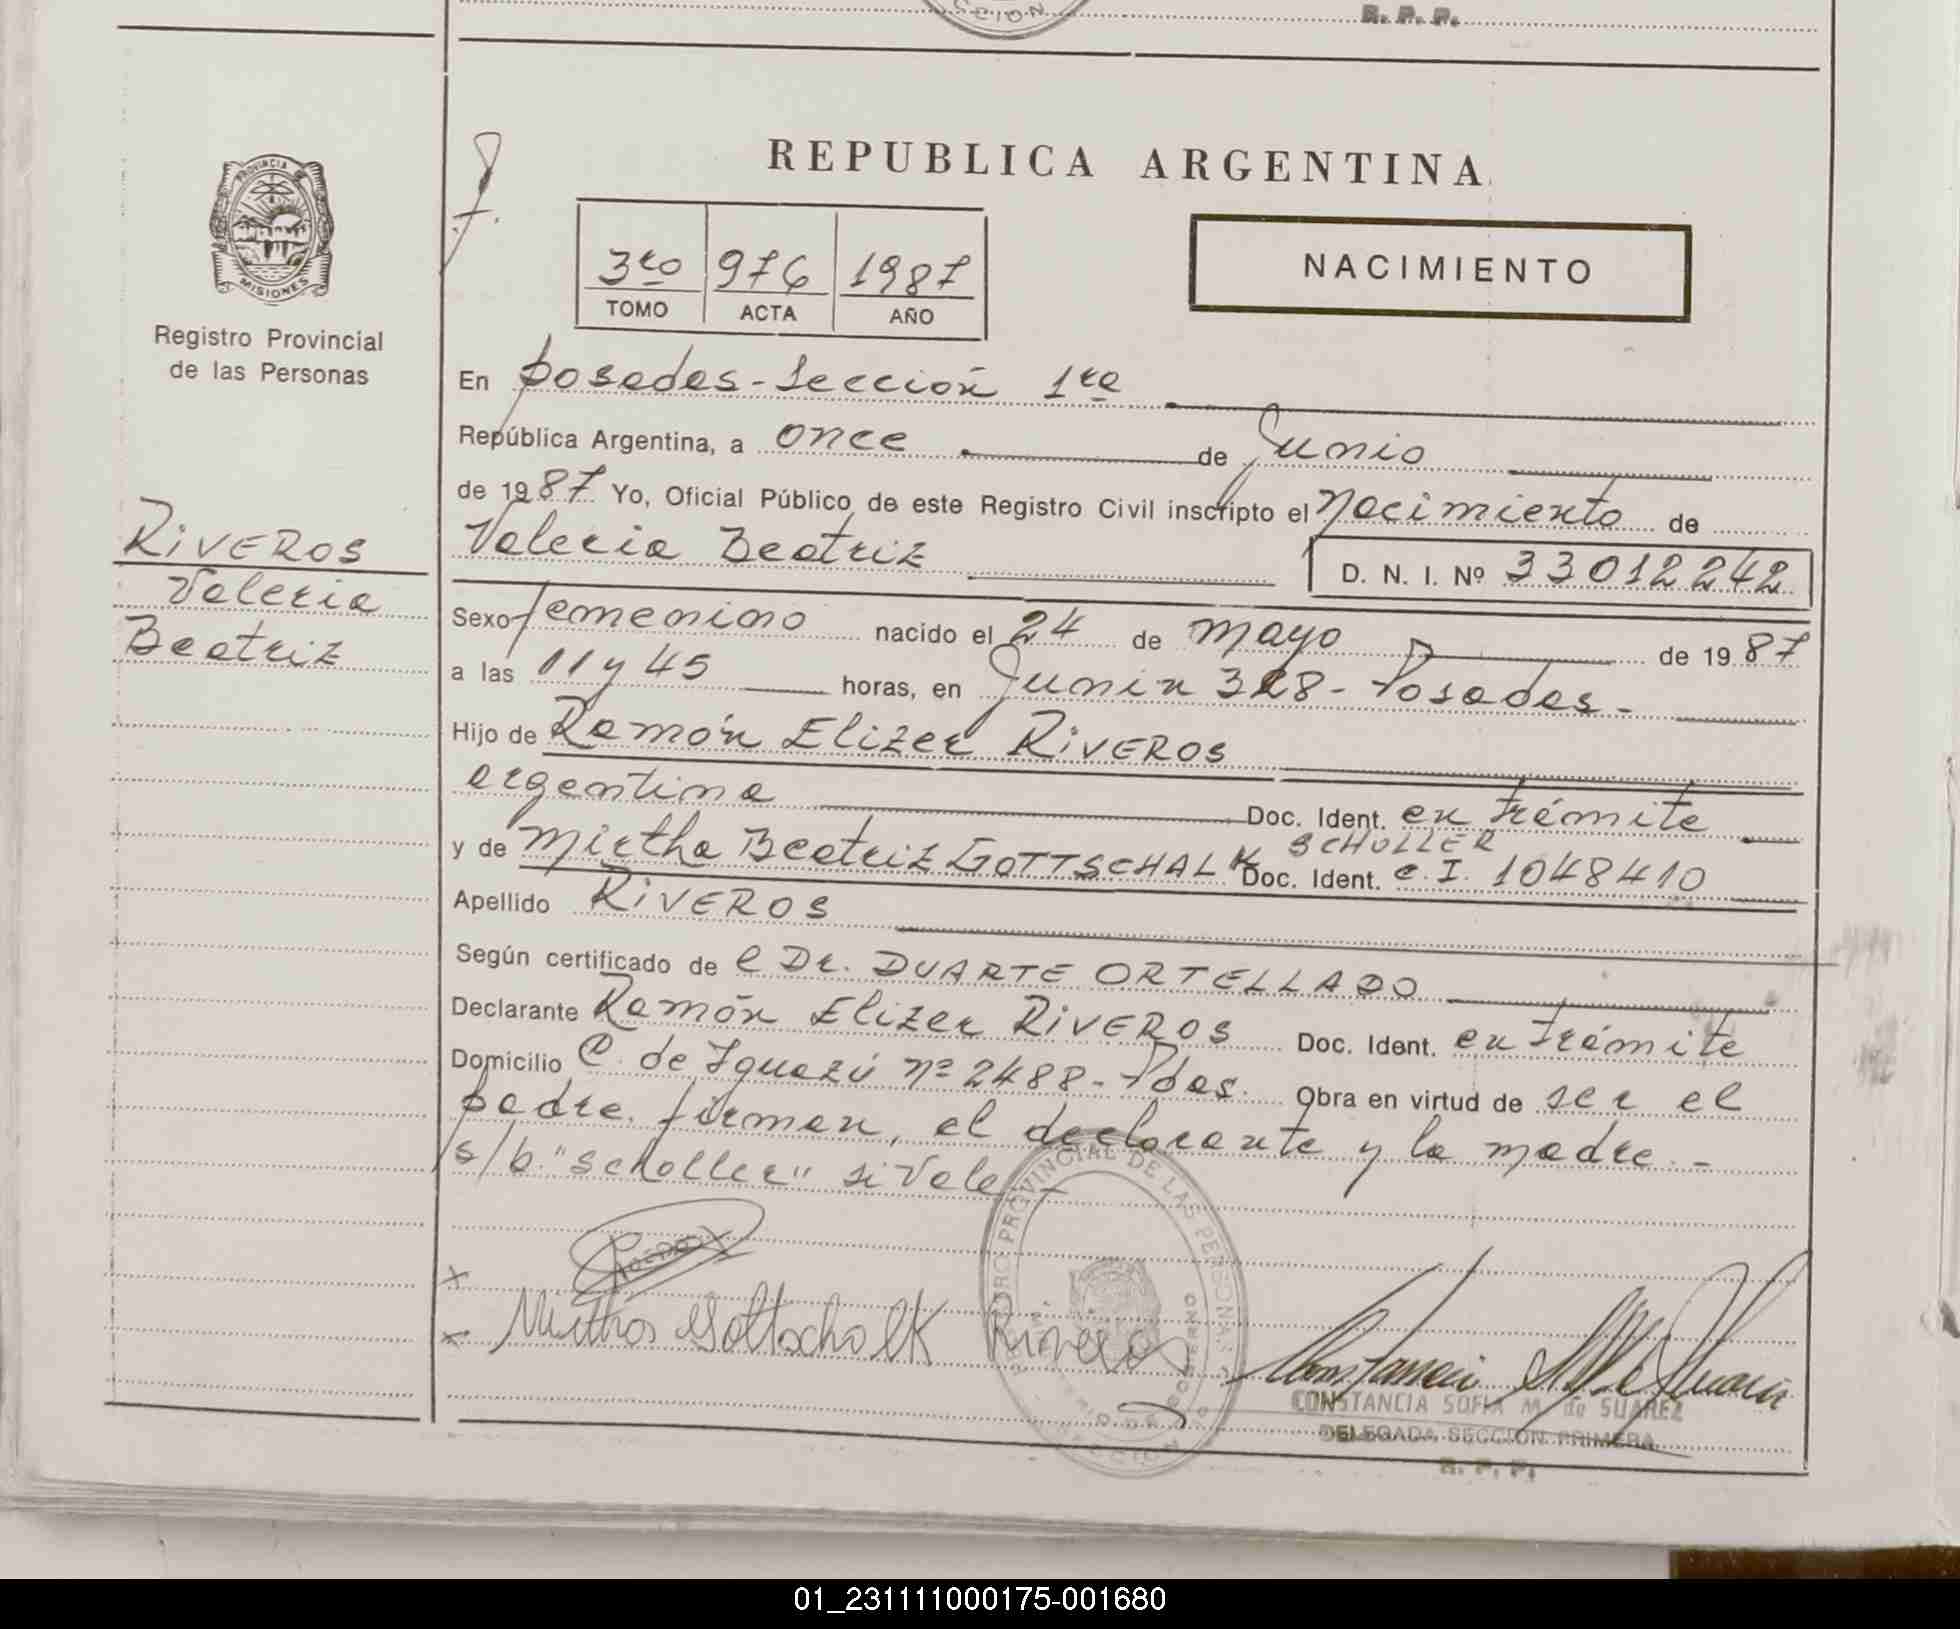 CCION
R. P. P.
PROVINCIA
MISIONES
Registro Provincial
de las Personas
RIVEROS
Valeria
Beatriz
REPUBLICA ARGENTINA
NACIMIENTO
3ro 976 1987
TOMO ACTA AÑO
En posadas - Sección 1ra
República Argentina, a once de Junio
de 1987 Yo, Oficial Público de este Registro Civil inscripto el Nacimiento de
Valeria Beatriz D. N. I. Nº 33012242
Sexo femenino nacido el 24 de mayo de 1987
a las 11 y 45 horas, en Junin 328 - Posadas -
Hijo de Ramón Elizer RIVEROS
argentina Doc. Ident. en trámite
SCHOLLER
y de Mirtha Beatriz GOTTSCHALK Doc. Ident. C. I. 1048410
Apellido RIVEROS
Según certificado de l Dr. DUARTE ORTELLADO
Declarante Ramón Elizer RIVEROS Doc. Ident. en trámite
Domicilio C. de Iguazú nº 2488 - Pdas. Obra en virtud de ser el
padre. firman, el declarante y la madre. -
s/b. "Scholler" si Vale -
REGISTRO PROVINCIAL DE LAS PERSONAS
Mirtha Gottschalk Riveros
CONSTANCIA SOFIA M. de SUAREZ
DELEGADA SECCION PRIMERA
R. P. P.
01_231111000175-001680